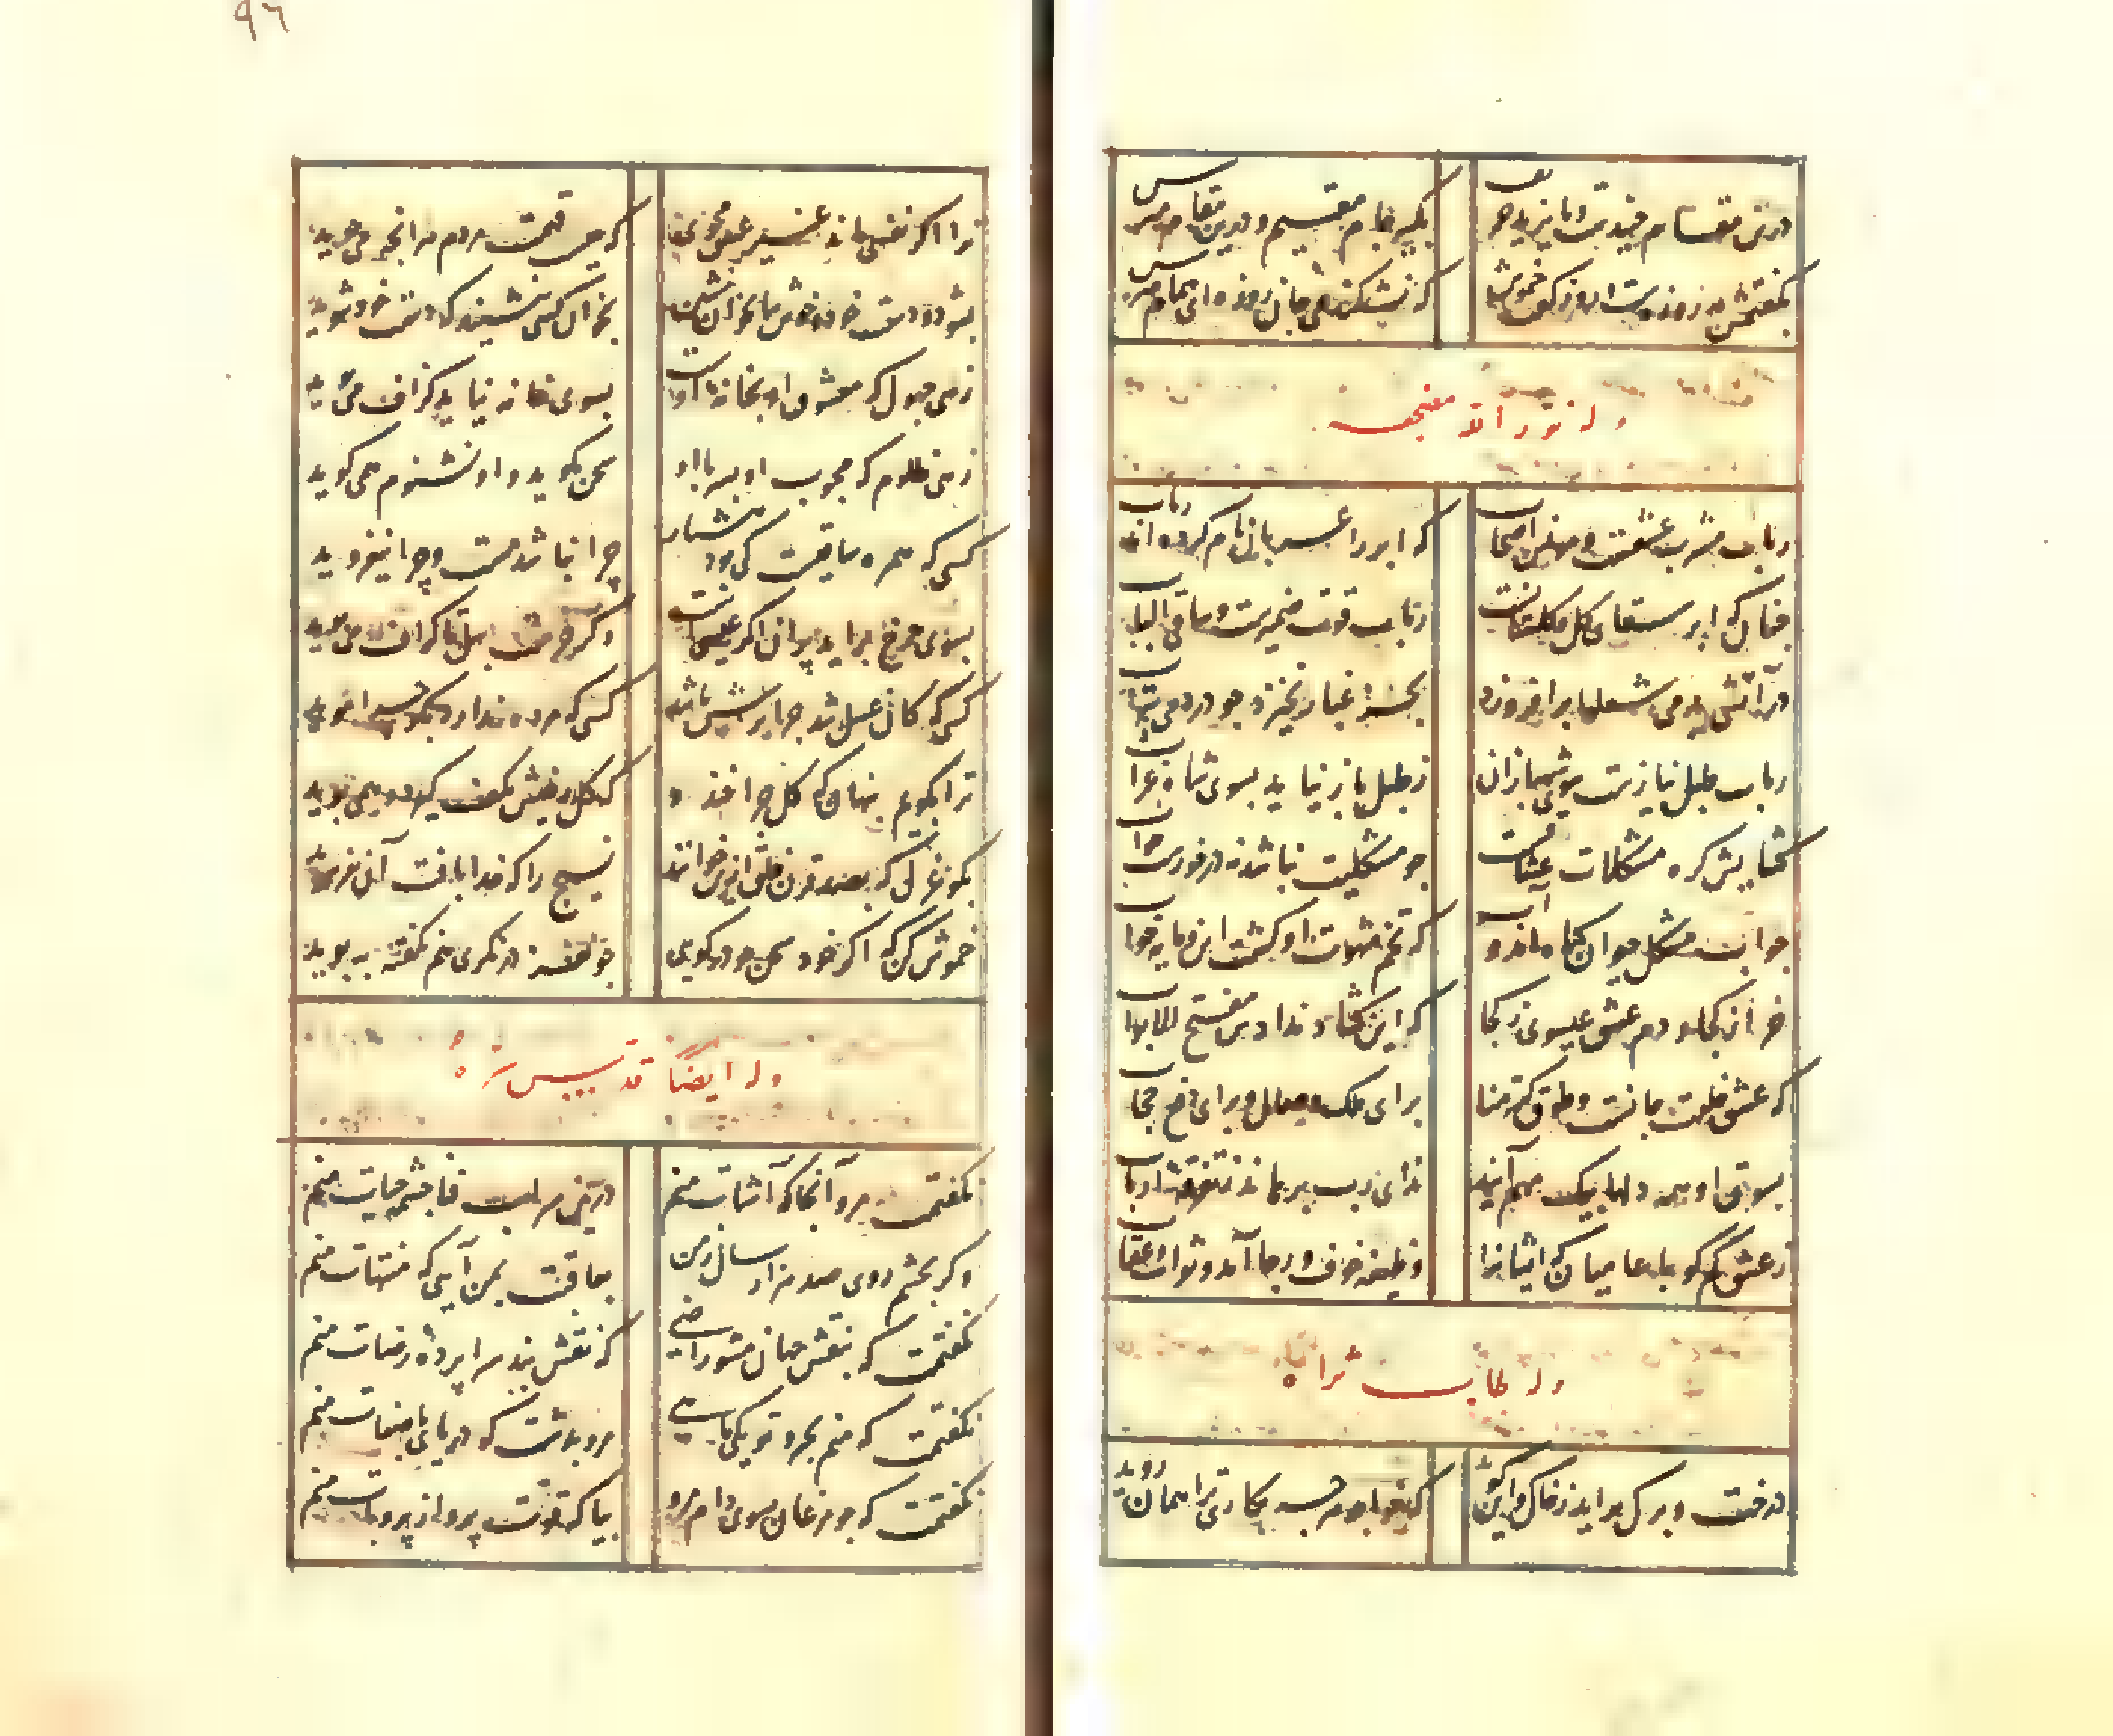 درین مقام جنیدست و بایزید حریف
بگیر جام مقیم و درین مقام مترس
بگفتمش که روزه‌ست و روز کو خموش
که نشکند می جان روزه‌ای همام مترس
وله نور الله مضجعه
رباب مشرب عشقست و مونس اصحاب
که ابر را عربان نام کرده‌اند رباب
چنانکه ابر سقای گل و گلستانست
رباب قوت ضمیرست و ساقی الباب
در آتشی بدمی شعلها برافروزد
بجز غبار نخیزد چو در دمی بتراب
رباب طبل بازست سوی شهبازان
ز طبل باز نیاید بسوی شاه غراب
گشایش گره مشکلات عشاقست
چو مشکلیت نباشد نه در خورست جواب
جوابت مشکل حیوان گیاه آمد و آب
که تخم شهوت او گشت ازین مایه خواب
خر از کجا و دم عشق عیسوی ز کجا
که این گشاد نداد مفتح الابواب
که عشق خلعت جانست و طوق کرمنا
برای ملک وصال و برای رفع حجاب
بسوی او همه دلها بیک مهم آیند
ندای رب برهاند ز تفرقه ارباب
ز عشق کم گو با عامیان که ایشانرا
وظیفه خوف و رجا آمد و ثواب و عقاب
وله طاب ثراه
درخت و برگ برآید ز خاک و این گوید
که خواجه هر چه بکاری ترا همان روید
٩٦
ترا اگر نفسی ماند غیر عشق مجوی
که چیست قیمت مردم هر آنچه می‌جوید
بشو دو دست ز خویش و بیا بخوان بنشین
بخوان کسی بنشیند که دست خود شوید
زهی جهول که معشوق او بخانه اوست
بسوی خانه نیاید گزاف می‌پوید
زهی ظلوم که محبوب او بر با او
سخن بگوید و او نشنوم همی گوید
کسی که همره ساقیست کی بود هشیار
چرا نباشد مست و چرا نیفزوید
بسوی چرخ براید پران اگر عیسیست
وگر خرست بهل تا گزاف می‌چرد
کسی که کان عسل شد چرا ترش باشد
کسی که مرده ندارد بگو چرا موید
ترا بگویم پنهان که گل چرا خندد
که گل‌رخیش بکف گیرد و همی بوید
بگو غزل که بصد قرن خلق این خوانند
نسیج را که خدا بافت آن نفرسوید
خموش کن که اگر خود سخن چو در گویی
چو نفس در نگری هم نگفته به بوید
وله ایضا قدس سره
نگفتمت مرو آنجا که آشنات منم
درین سراب فنا چشمه حیات منم
وگر بخشم روی صد هزار سال ز من
بعاقبت بمن آیی که منتهات منم
نگفتمت که بنقش جهان مشو راضی
که نقش بند سراپرده رضات منم
نگفتمت که منم بحر و تو یکی ماهی
مرو بدشت که دریای با صفات منم
نگفتمت که چو مرغان بسوی دام مرو
بیا که قوت پرواز پر و بالت منم